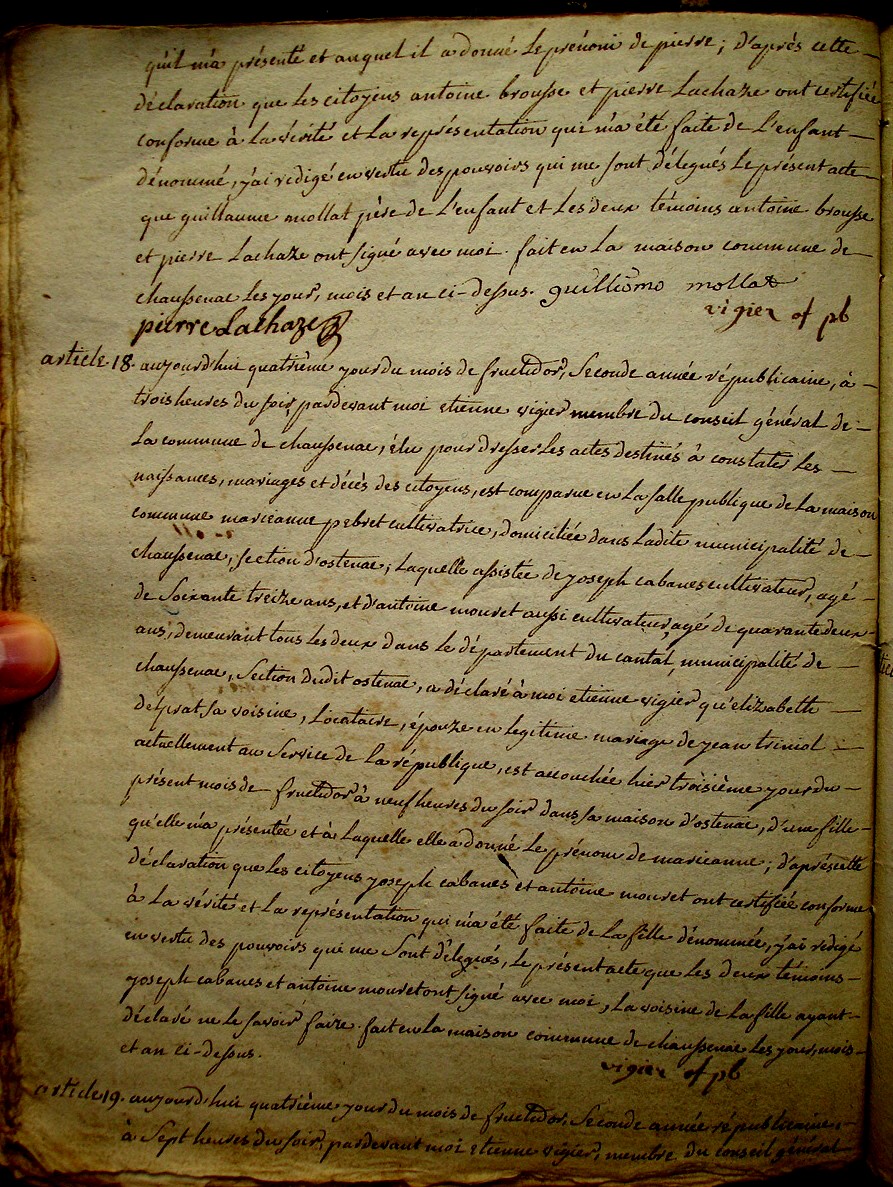 qu'il m'a présenté et auquel il a donné le prénom de pierre; d'après cette
déclaration que les citoyens antoine brousse et pierre Lachaze ont certifiée
conforme à la vérité et la représentation qui m'a été faite de L'enfant
dénommé, j'ai redigé en vertu des pouvoirs qui me sont délegués le présent acte
que guillaume mollat père de L'enfant et les deux témoins antoine brousse
et pierre Lachaze ont signé avec moi. fait en la maison commune de
chaussenac les jour, mois et an ci-dessus. guilliomo mollat
vigier of pb
pierre Lachaze
article 18. aujourd'hui quatrième jour du mois de fructidor, seconde année républicaine, à
trois heures du soir, pardevant moi etienne vigier membre du conseil général de
la commune de chaussenac, élu pour dresser les actes destinés à constater les
naissances, mariages et décès des citoyens, est comparue en la salle publique de la maison
commune marieanne pebret cultivatrice, domiciliée dans ladite municipalité de
chaussenac, section d'ostenac, laquelle assistée de joseph cabanes cultivateur, agé
de soixante treize ans, et d'antoine mouret aussi cultivateur, agé de quarante deux
ans, demeurant tous les deux dans le département du cantal, municipalité de
chaussenac, section dudit ostenac, a déclaré à moi etienne vigier qu'elizabeth
delprat sa voisine, locataire, épouze en legitime mariage de jean triniol
actuellement au service de la république, est accouchée hier troisième jour du
présent mois de fructidor à neuf heures du soir dans sa maison d'ostenac, d'une fille
qu'elle m'a présentée et à laquelle elle a donné le prénom de marieanne; d'après cette
déclaration que les citoyens joseph cabanes et antoine mouret ont certifiée conforme
à la vérité et la représentation qui m'a été faite de la fille dénommée, j'ai redigé
en vertu des pouvoirs qui me sont délegués, le présent acte que les deux témoins
joseph cabanes et antoine mouret ont signé avec moi, la voisine de la fille ayant
déclaré ne le savoir faire. fait en la maison commune de chaussenac les jour, mois
et an ci-dessus.
vigier of pb
article 19. aujourd'hui quatrième jour du mois de fructidor, seconde année républicaine,
à sept heures du soir, pardevant moi etienne vigier, membre du conseil général